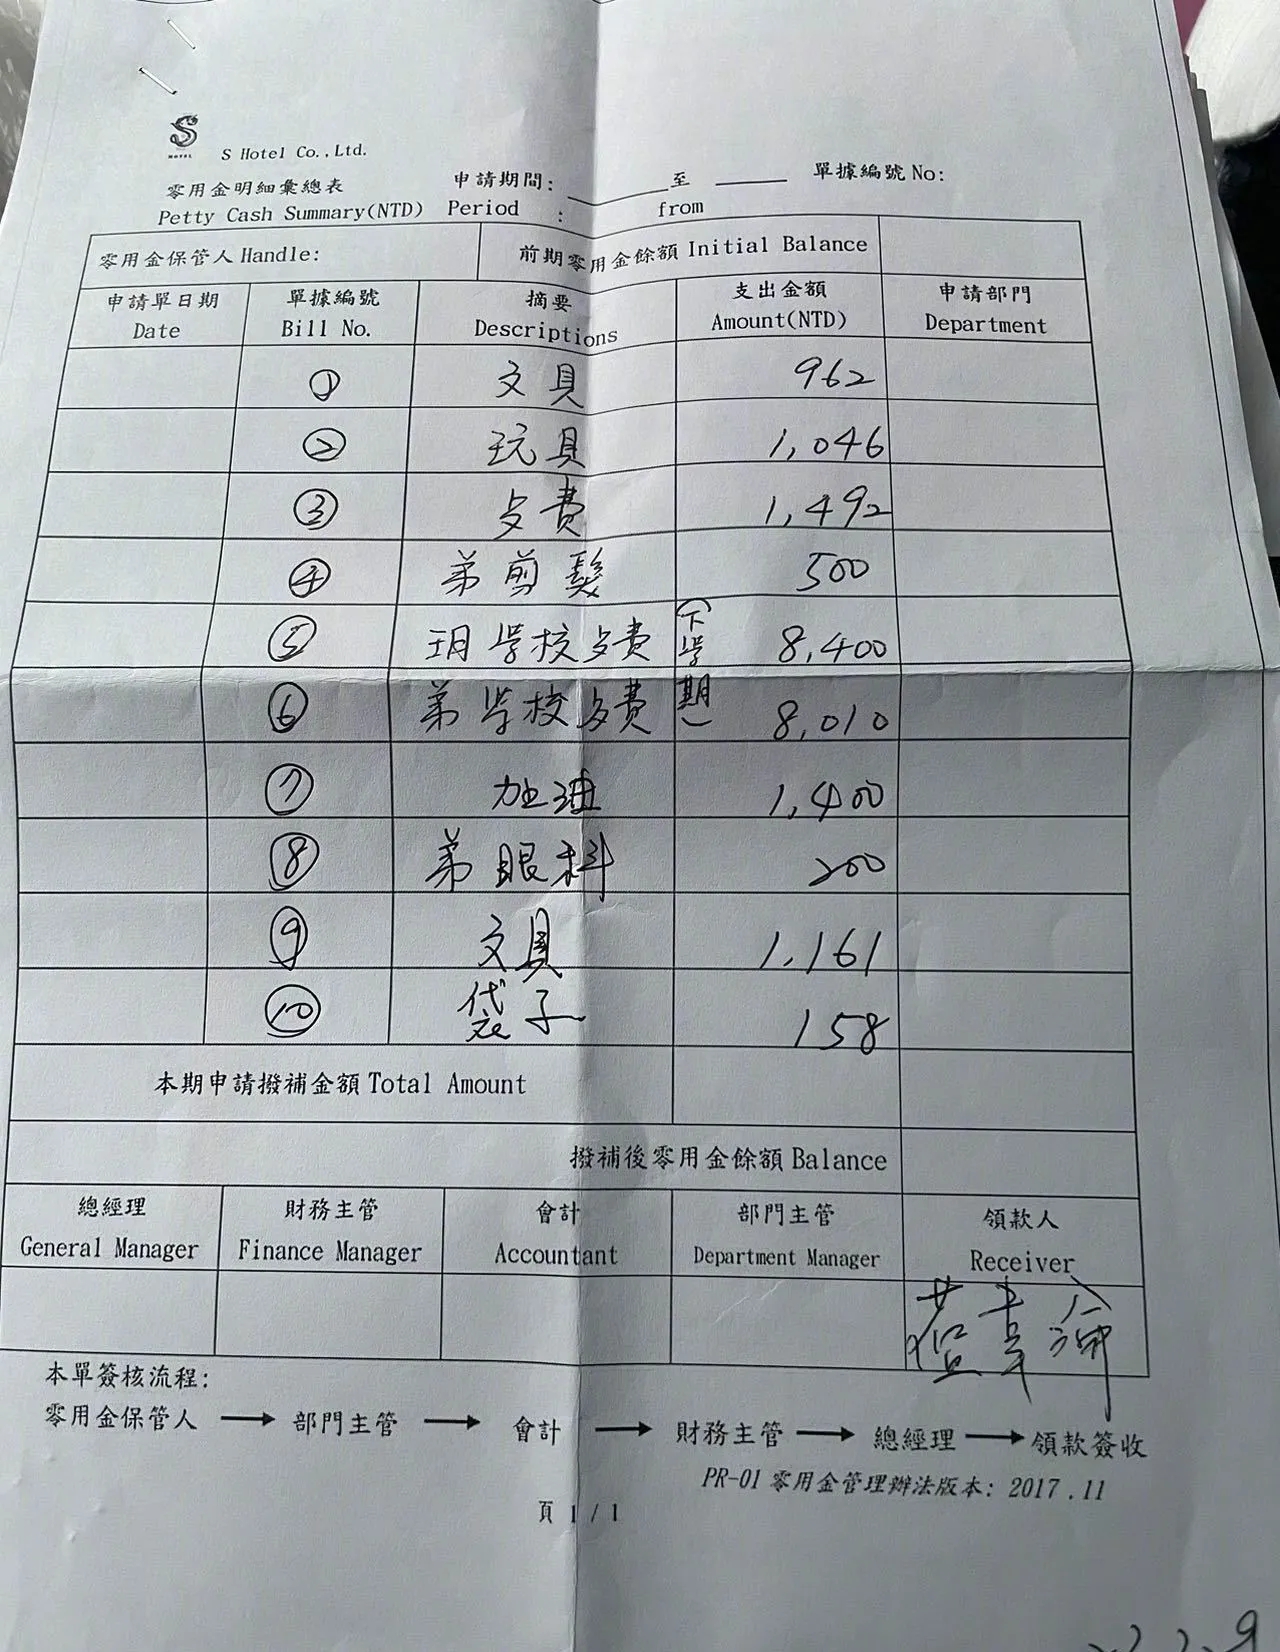 S
HOTEL
S Hotel Co.,Ltd.
零用金明細彙總表 申請期間: 至 單據編號 No:
Petty Cash Summary(NTD) Period : from
零用金保管人 Handle: 前期零用金餘額 Initial Balance
申請單日期 單據編號 摘要 支出金額 申請部門
Date Bill No. Descriptions Amount(NTD) Department
① 文具 962
② 玩具 1,046
③ 歺費 1,492
④ 弟剪髮 500
⑤ 玥學校歺費 (下學期) 8,400
⑥ 弟学校歺費 8,010
⑦ 加油 1,400
⑧ 弟眼科 200
⑨ 文具 1,161
⑩ 袋子 158
本期申請撥補金額 Total Amount
撥補後零用金餘額 Balance
總經理 財務主管 會計 部門主管 領款人
General Manager Finance Manager Accountant Department Manager Receiver
本單簽核流程:
零用金保管人 → 部門主管 → 會計 → 財務主管 → 總經理 → 領款簽收
PR-01 零用金管理辦法版本: 2017 .11
頁 1 / 1